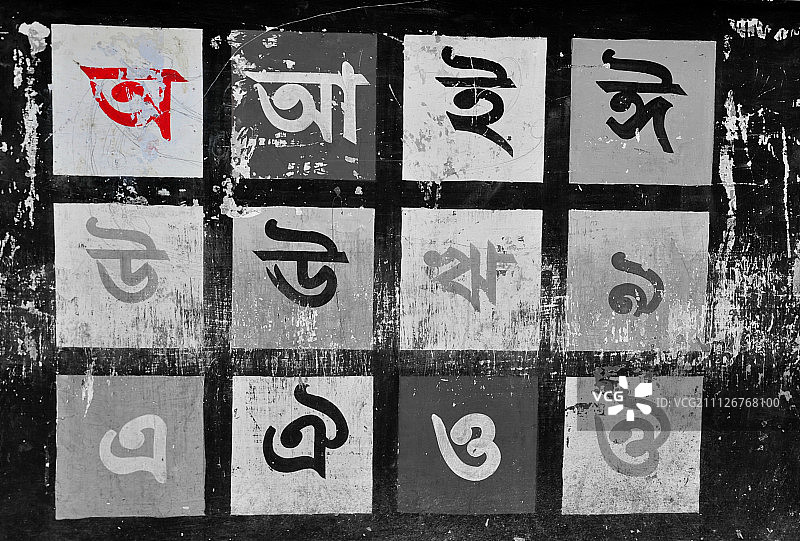 অ আ ই ঈ
উ ঊ ঋ ঌ
এ ঐ ও ঔ
VCG VCG ID: VCG211126768100